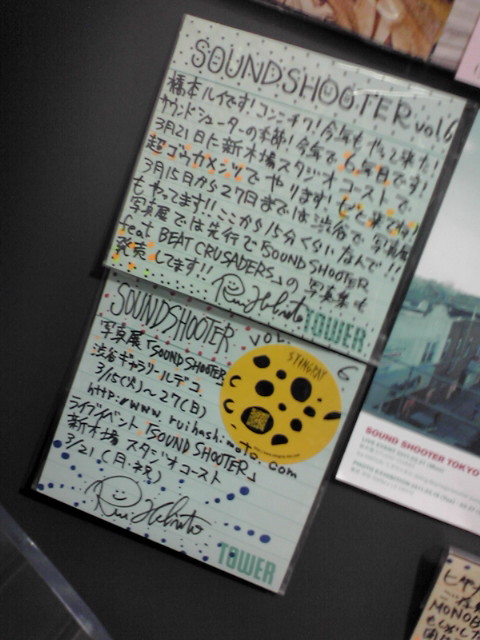 SOUNDSHOOTER vol6
橋本ルイです!コンチワ!今年もやって来た!
サウンドシューターの季節!今年で6年目です!
3月21日に新木場スタジオコーストで
超ゴウカメンツでやります!
3月15日から27日までは渋谷で写真展
もやってます!!ここから15分くらいなんで!!
写真展では先行で「SOUND SHOOTER
feat BEAT CRUSADERS」の写真集も
発売してます!!
TOWER
SOUNDSHOOTER vol. 6
写真展「SOUNDSHOOTER」
渋谷ギャラリールデコ
3/15(火)~27(日)
http://www.ruihashimoto.com
ライブイベント「SOUND SHOOTER」
新木場スタジオコースト
3/21(月・祝)
TOWER
SOUND SHOOTER TOKYO
MONOB